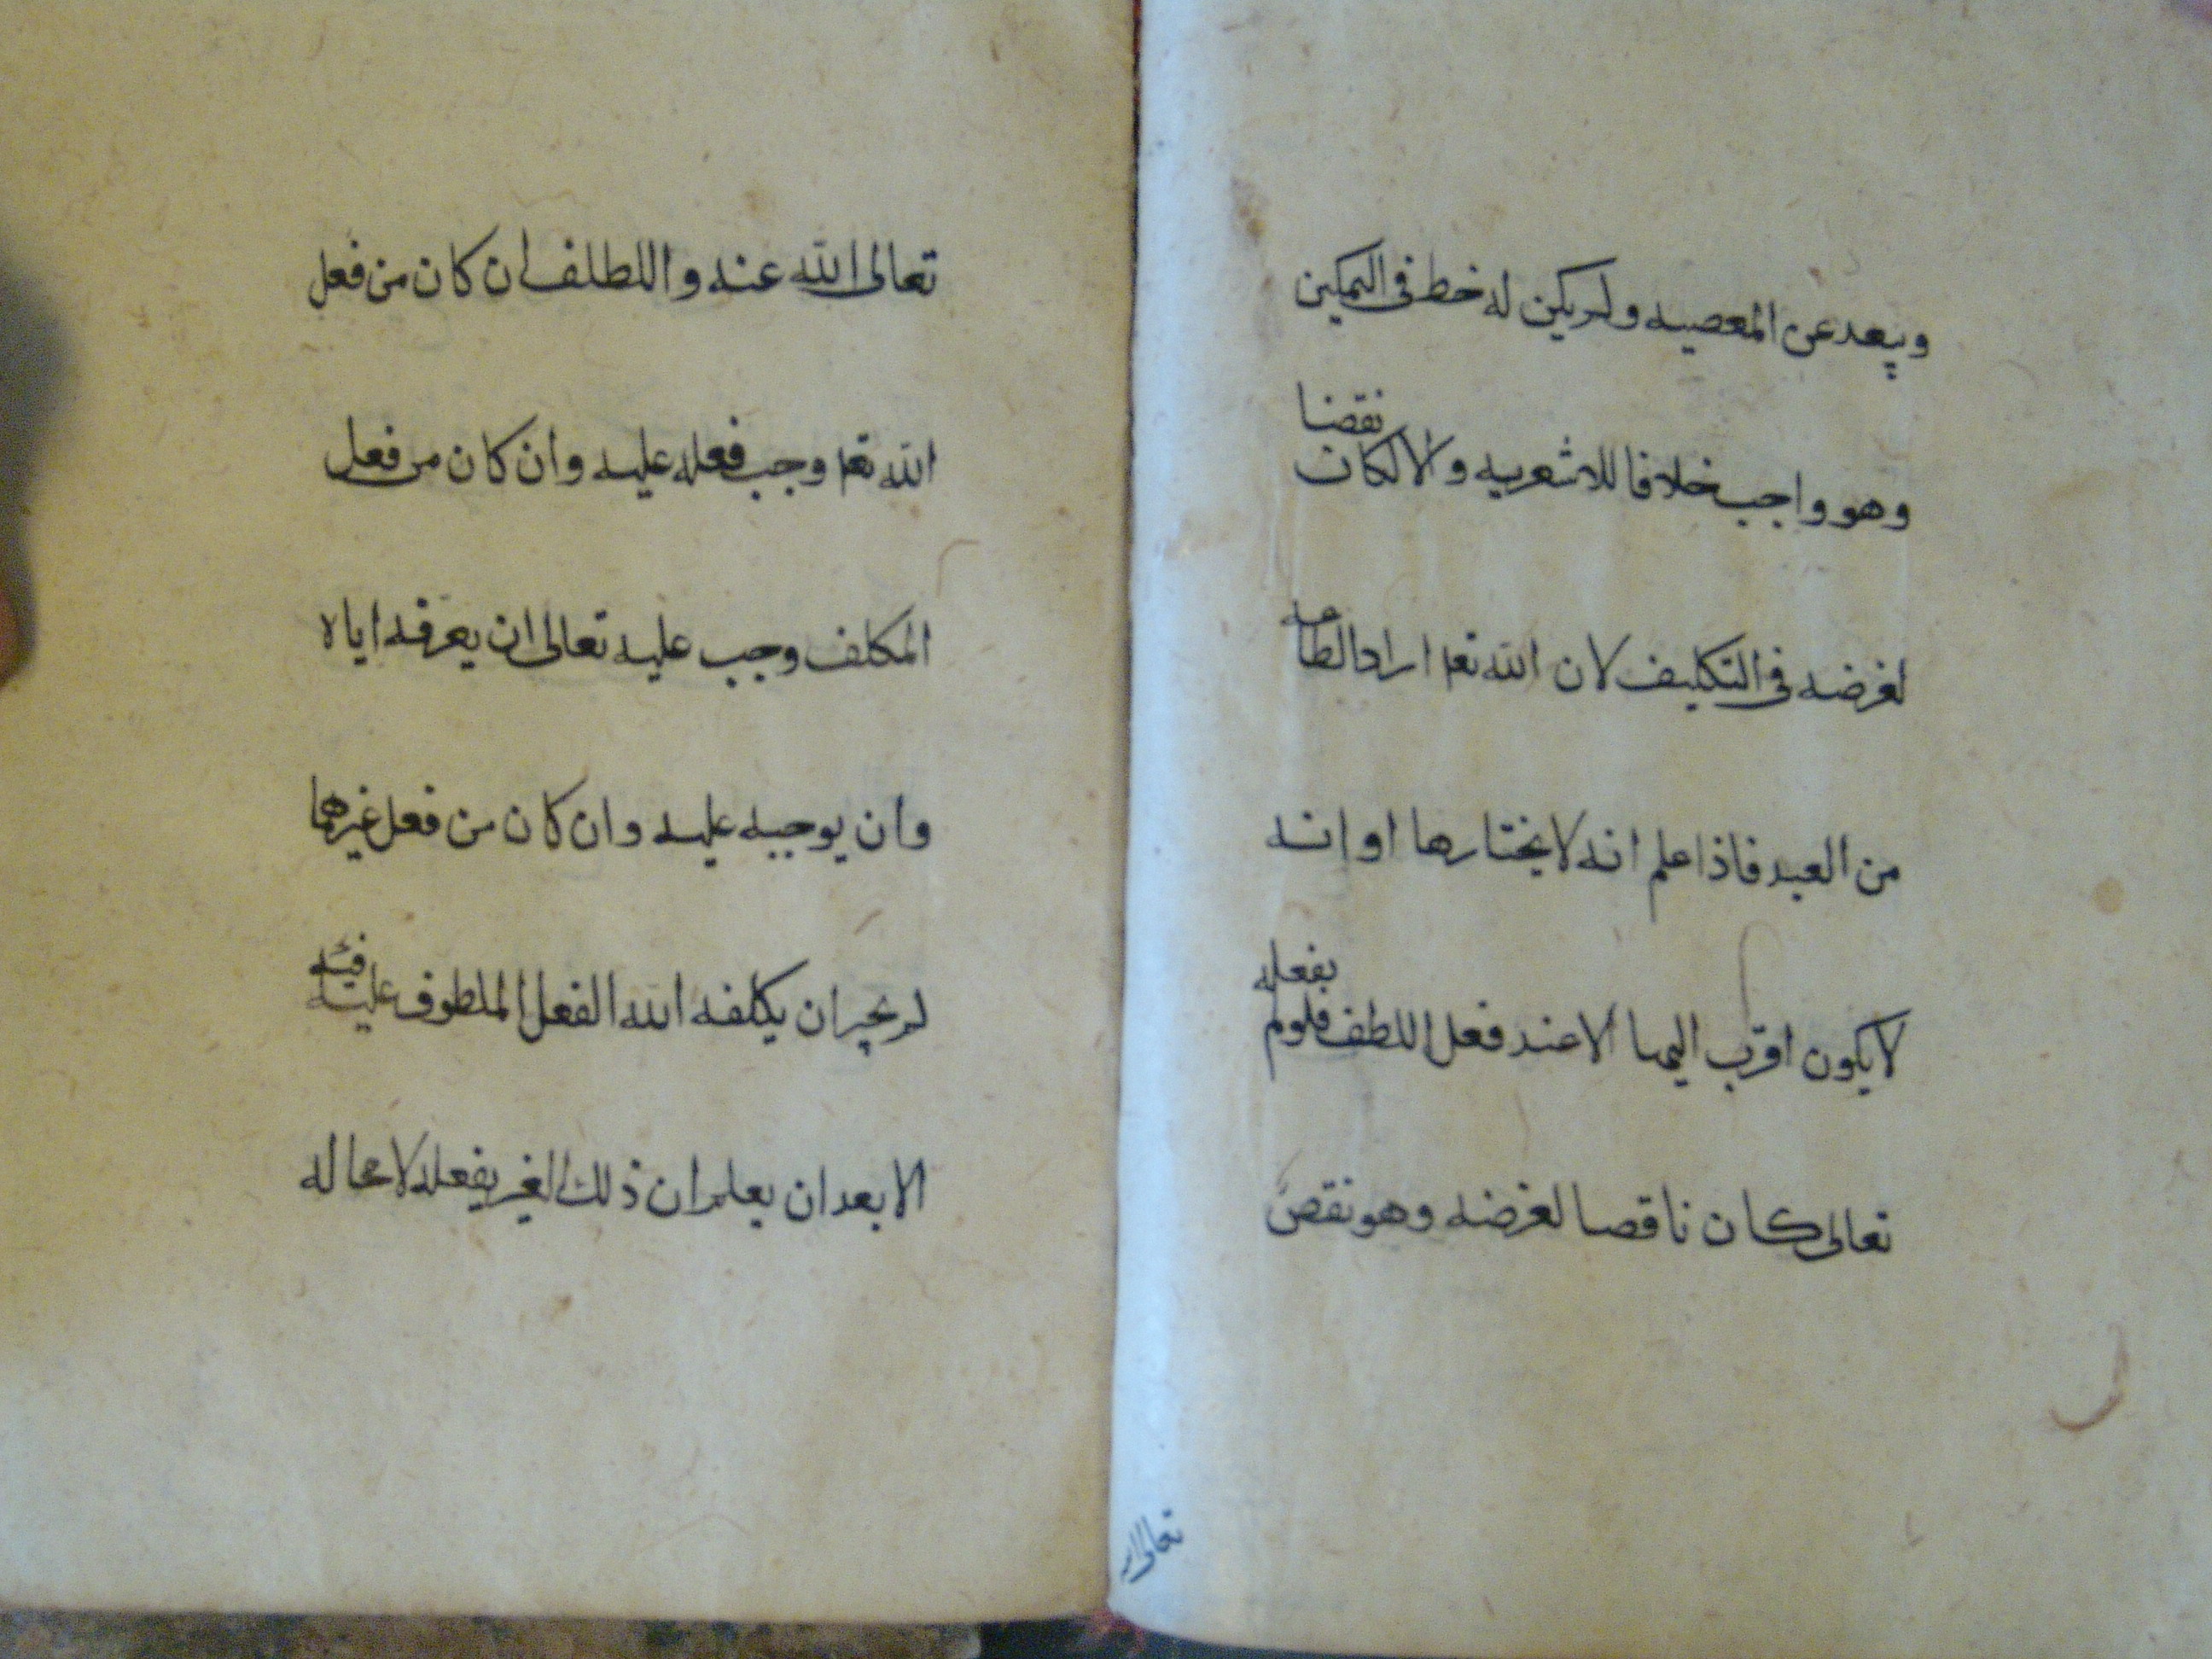 ويبعد عن المعصيه ولم يكن له خط في التمكين
وهو واجب خلافا للاشعريه والا لكان نقضا
لغرضه في التكليف لان الله تعا اراد الطاعه
من العبد فاذا علم انه لا يختارها او انه
لا يكون اقرب اليها الا عند فعل اللطف فلو لم يفعله
تعالى كان ناقصا لغرضه وهو نقص
تعالى الله
تعالى الله عنه واللطلف ان كان من فعل
الله تعا وجب فعله عليه وان كان من فعل
المكلف وجب عليه تعالى ان يعرفه اياه
وان يوجبه عليه وان كان من فعل غيرهما
لم يجز ان يكلفه الله الفعل الملطوف عليه فيه
الا بعد ان يعلم ان ذلك الغير يفعله لا محاله